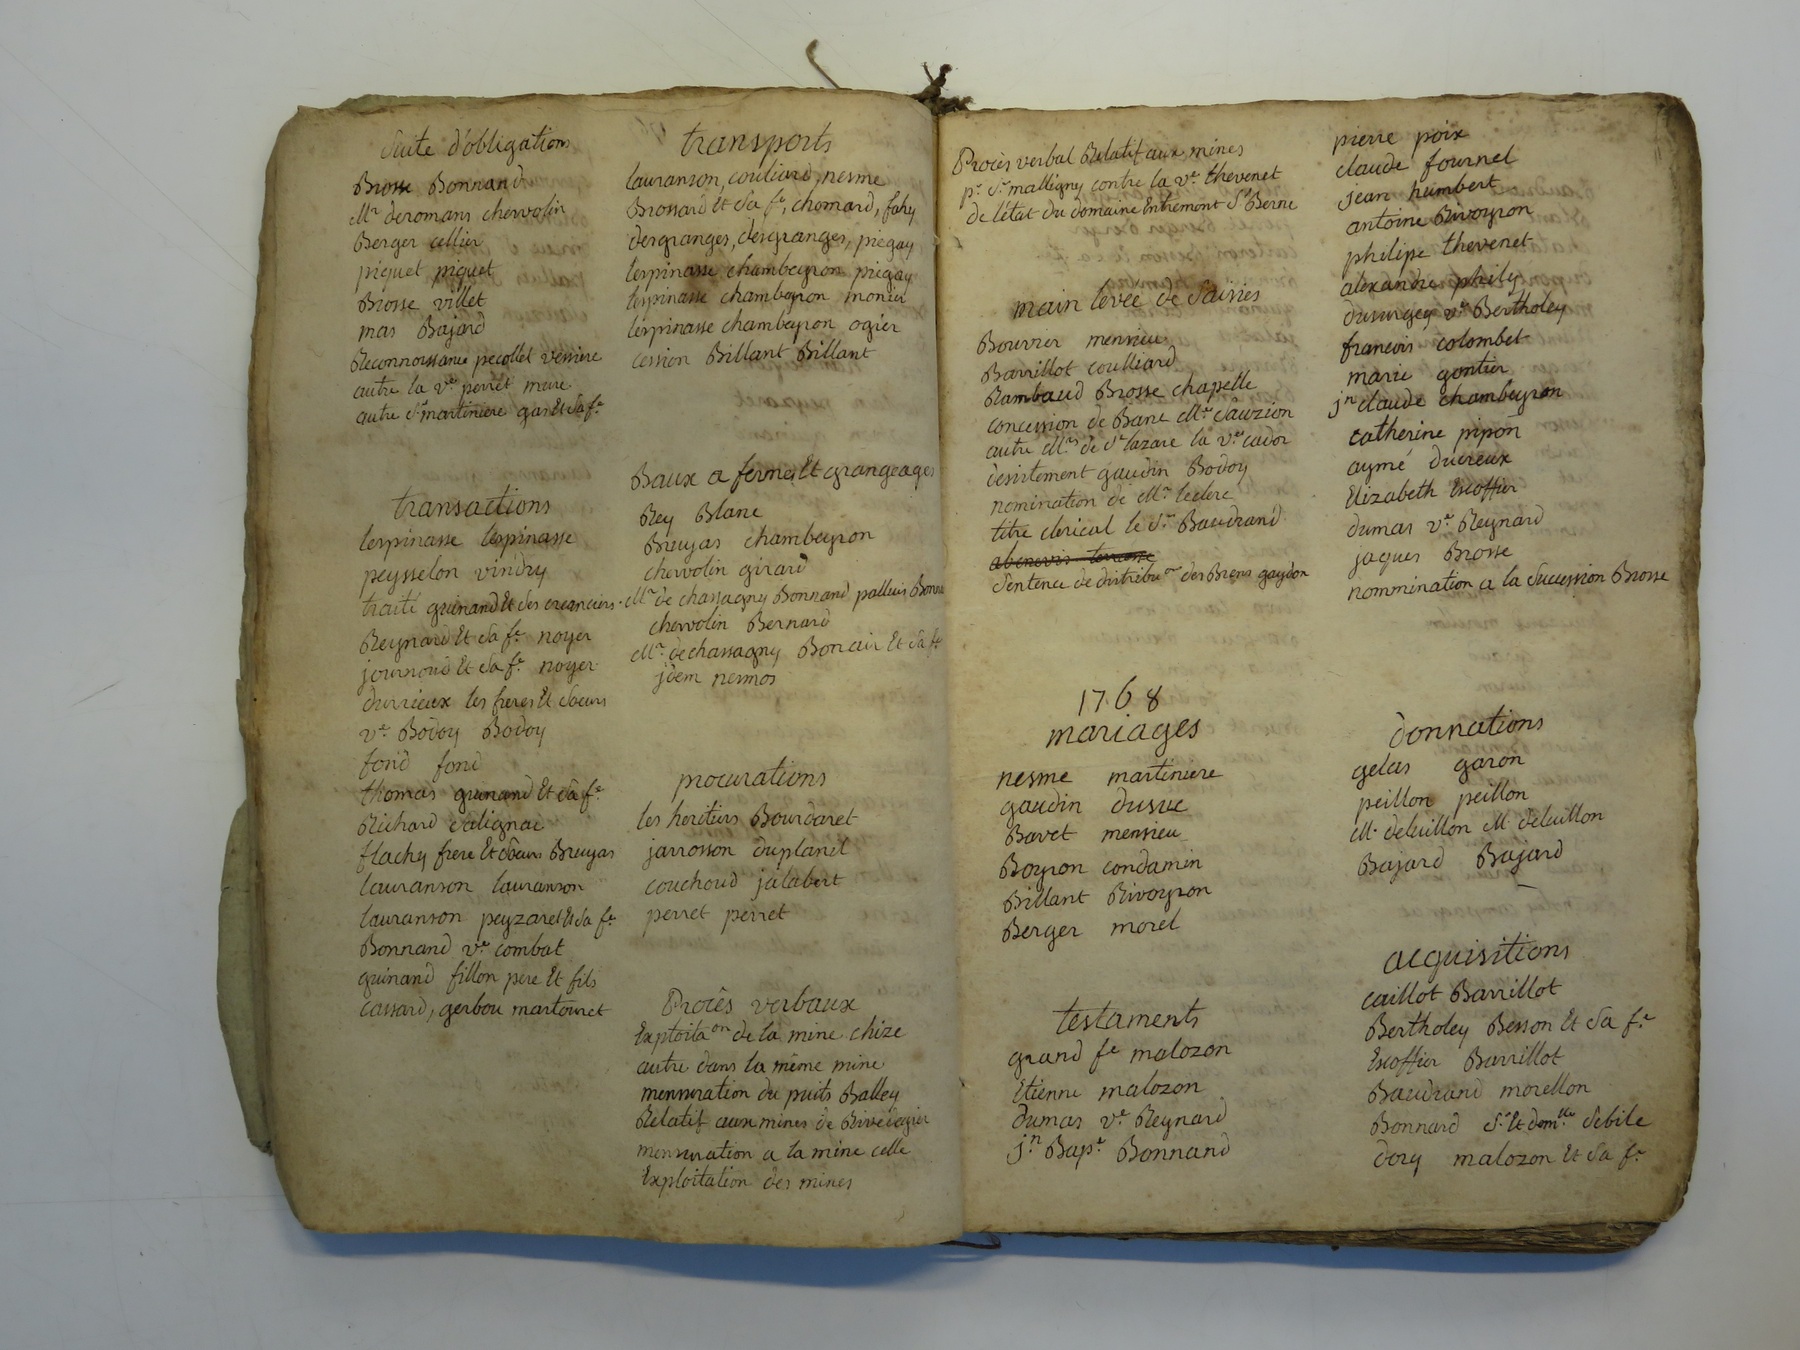 Suite d'obligations
Brosse Bonnand
Mr deromans chervolin
Berger cellier
piquet piquet
Brosse villet
mas Bajard
Reconnoissance pecollet verriere
autre la ve perret mure
autre Sr martiniere gas Et Sa fe
transactions
lespinasse lespinasse
peysselon vindry
traité guinand Et ses creanciers
Reynard Et Sa fe noyer
journoud Et Sa fe noyer
durrieux les freres Et Soeurs
ve Bodoy Bodoy
fond fond
thomas guinand Et Sa fe
Richard valignac
flachy frere Et Soeurs Bruyas
lauranson lauranson
lauranson peyzaret Et Sa fe
Bonnand ve combat
guinand fillon pere Et fils
cassard, gerbou martouret
transports
lauranson, couliard, nesme
Brossard Et Sa fe, chomard, fahy
desgranges, desgranges, piegay
lespinasse chambeyron piegay
lespinasse chambeyron monier
lespinasse chambeyron ogier
cession Billant Billant
Baux a fermes Et grangeages
Rey Blanc
Bruyas chambeyron
chervolin girard
Mr de chassagny Bonnand palluis Bonna
chervolin Bernard
Mr de chassagny Bonair Et Sa fe
jdem nesmos
procurations
les heritiers Bourdaret
jarrosson duplanil
couchoud jalabert
perret perret
Procès verbaux
Exploitaon de la mine chize
autre dans la même mine
mensuration du puits Balley
Relatif aux mines de Rivedegier
mensuration a la mine celle
Exploitation des mines
Procès verbal Relatif aux mines
pr Sr malligny contre la ve thevenet
de l'état du domaine Entremont St Berne
main levée de Saisies
Bourrier mensieu
Barrillot coulliard
Rambaud Brosse chapelle
concession de Banc Mr Sauzion
autre Mrs de St lazare la ve cador
desistement gaudin Bodoy
nomination de Mr leclerc
titre clerical le Sr Baudrand
abenevis terrasse
Sentence de distribuon des Biens gaydon
pierre poix
claude fournel
jean humbert
antoine Rivoyron
philipe thevenet
alexandre phily
dusurgey ve Bertholey
francois colombet
marie gontier
jn claude chambeyron
catherine pipon
aymé ducreux
Elizabeth Escoffier
dumas ve Reynard
jaques Brosse
nommination a la Succession Brosse
1768
mariages
nesme martiniere
gaudin dusuc
Bavet mensieu
Boyron condamin
Billant Rivoyron
Berger morel
testaments
grand fe malozon
Etienne malozon
dumas ve Reynard
jn Bapte Bonnand
donnations
gelas garon
peillon peillon
M. deluillon M deluillon
Bajard Bajard
acquisitions
caillot Barrillot
Bertholey Besson Et Sa fe
Escoffier Barrillot
Baudrand morellon
Bonnard Sr Et demlle Sebile
dory malozon Et Sa fe